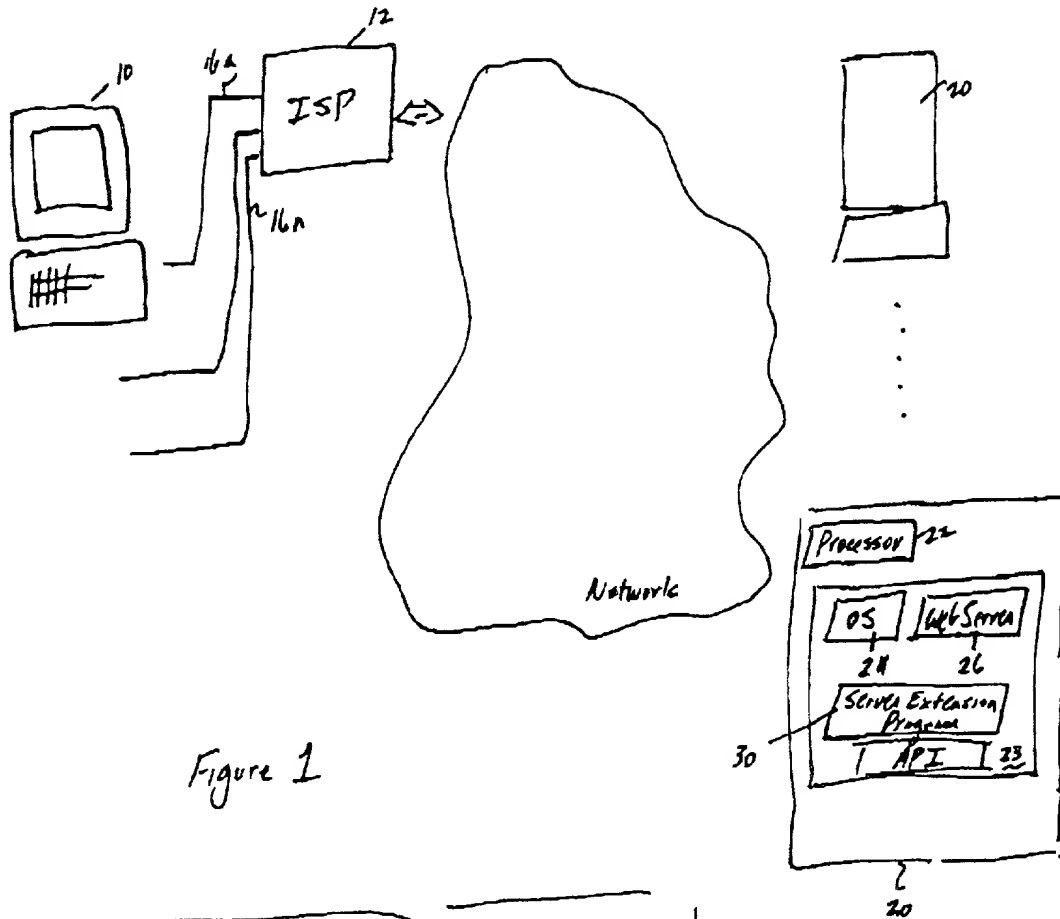 10
16a
12
ISP
16n
Network
20
Processor
22
OS
Web Server
24
26
Server Extension
Program
30
API
23
20
Figure 1